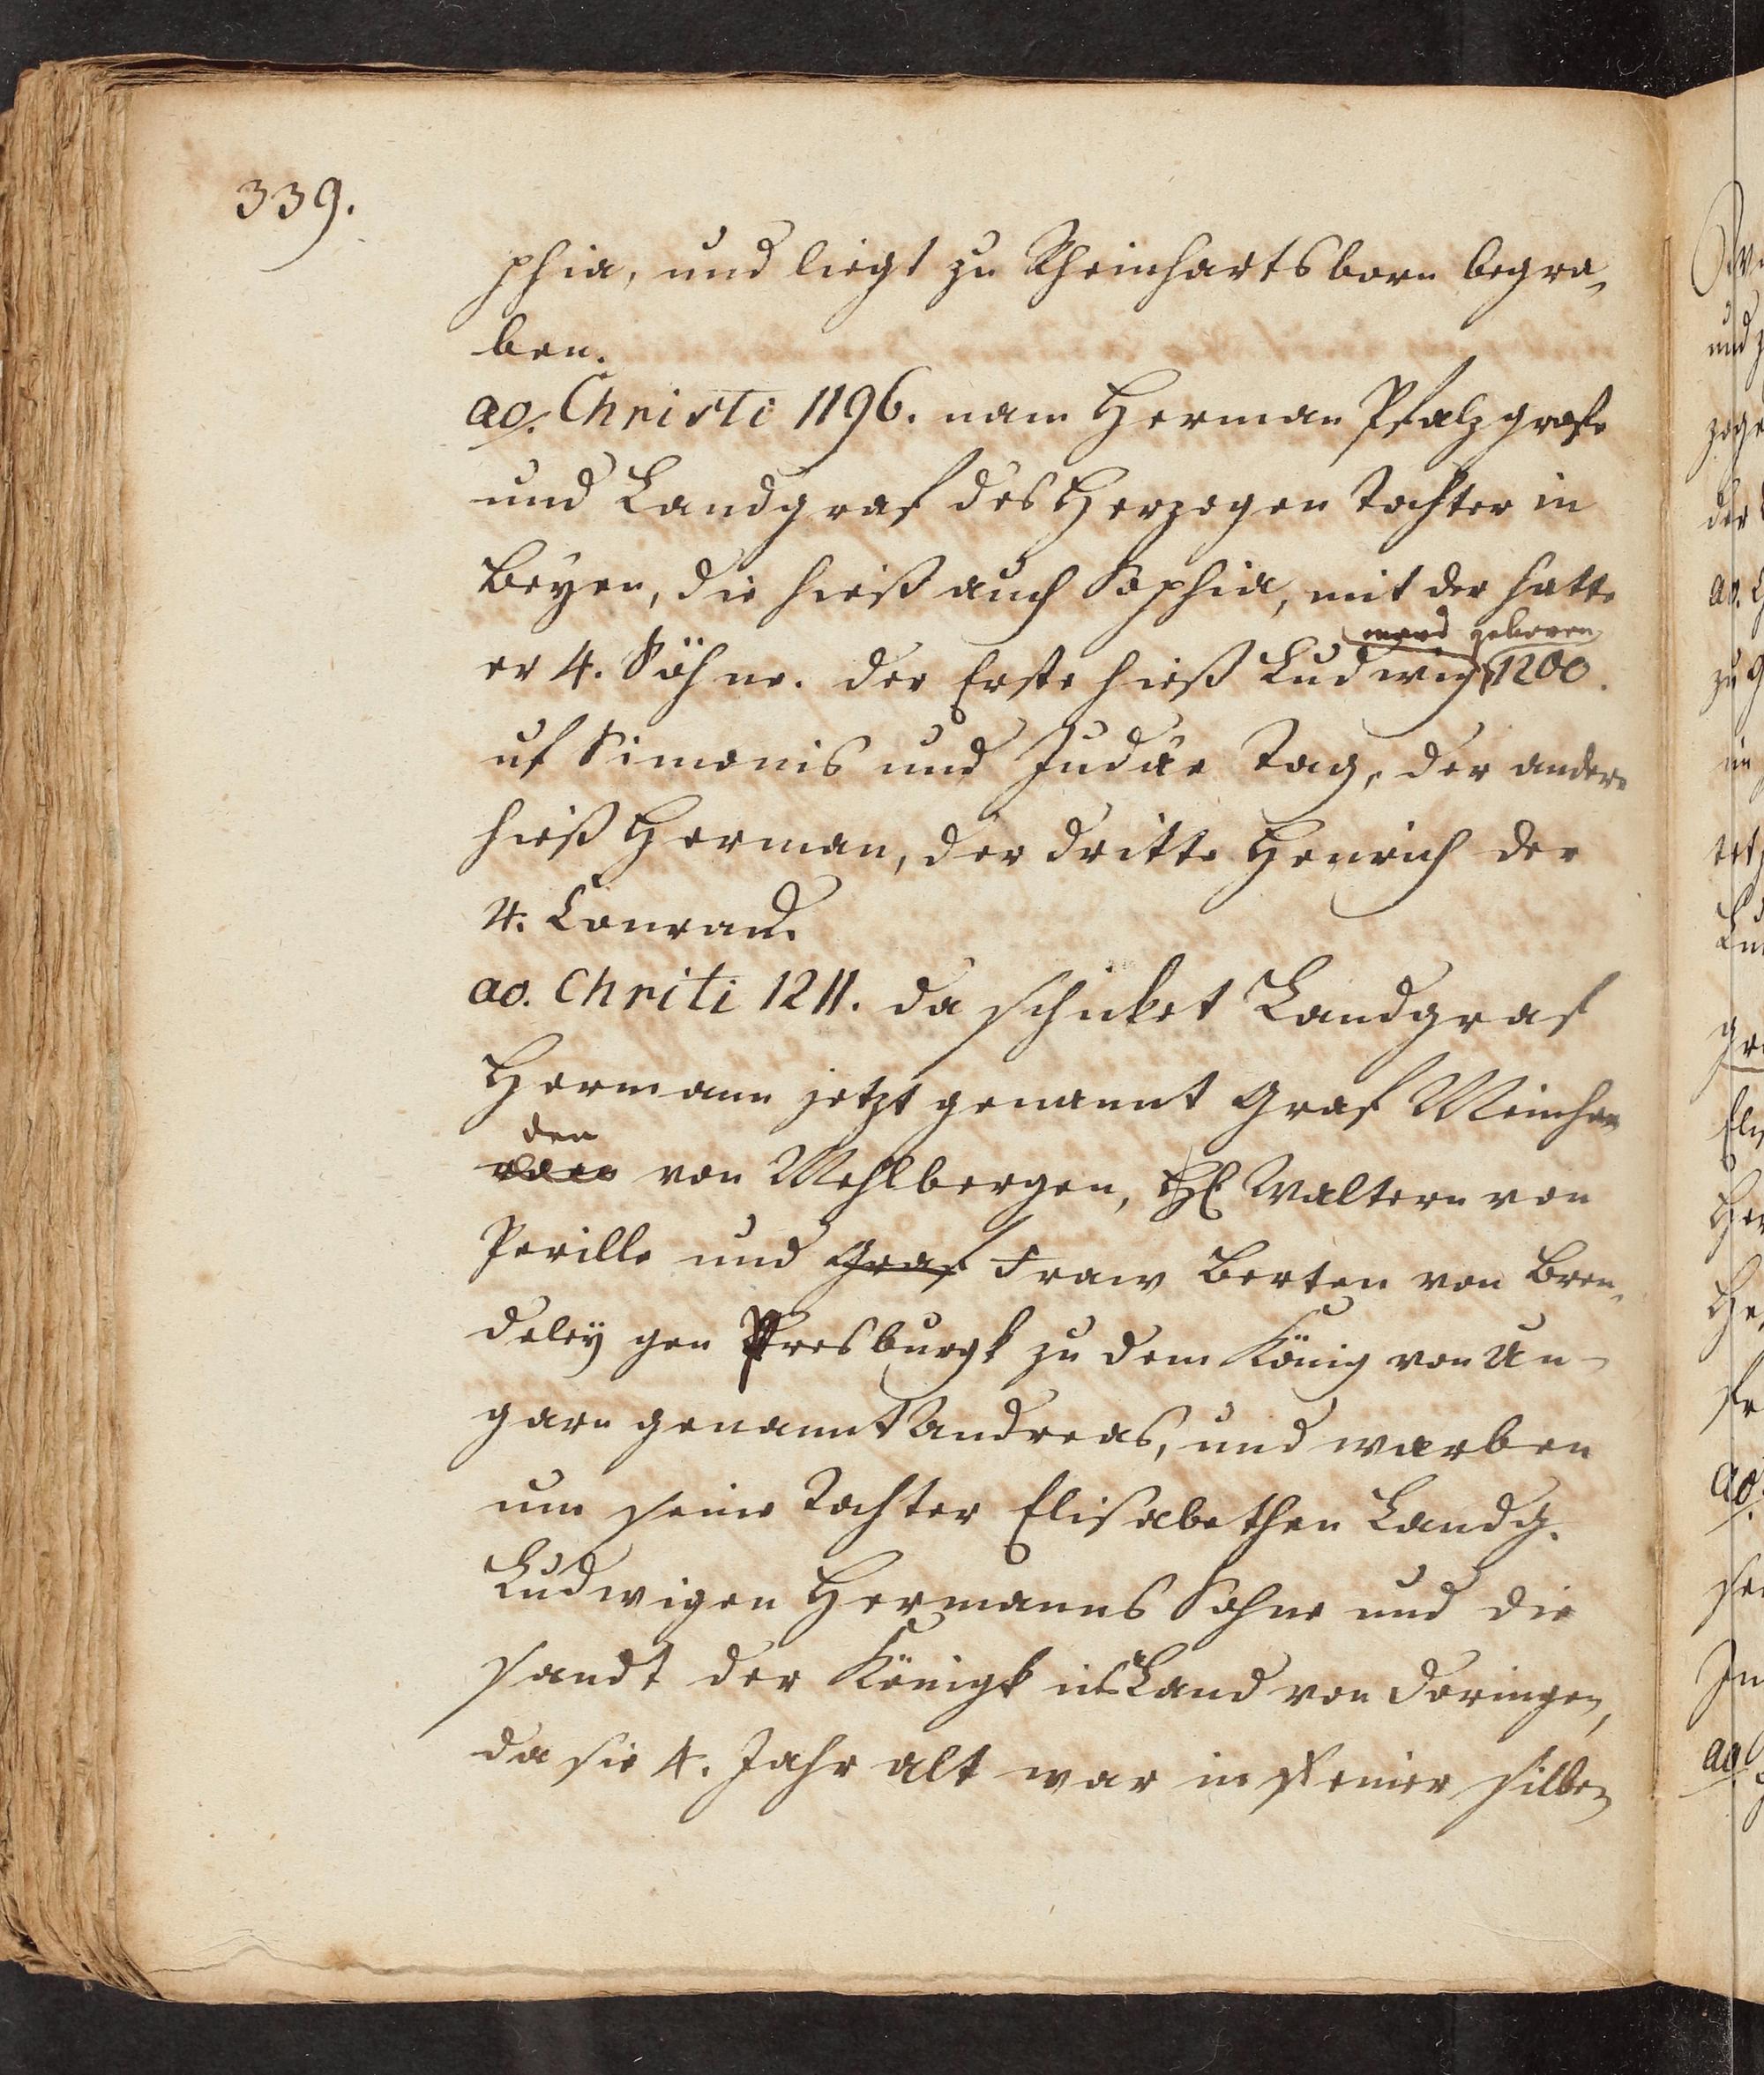 339.
phia, und liegt zu Rheinhartsborn begra„
ben.
ao. Christi 1196. nam Herman Pfalzgrafe
und Landgraf des Herzogen Tochter in
Beyen, die hieß auch Sophia, mit der hatte
ward geboren
er 4. Söhne. der Erste hieß Ludwig 1200.
uf Simonis und Judäe Tag, der andere
hieß Herman, der dritte Henrich der
4. Conrad.
ao. Chriti 1211. da schicket Landgraf
Hermann jetzt genannt Graf Meinhar
den
von Mehlbergen, H. Waltern von
Perille und Graf Fraw Berten von Bren„
deleÿ gen Presburgk zu dem König von Un-
garn genannt Andreas, und warben
um seine Tochter Elisabethen Landg.
Ludwigen Hermanns Sohne und die
sandt der Königk ins Land von Doringen,
da sie 4. Jahr alt war in einer silber„